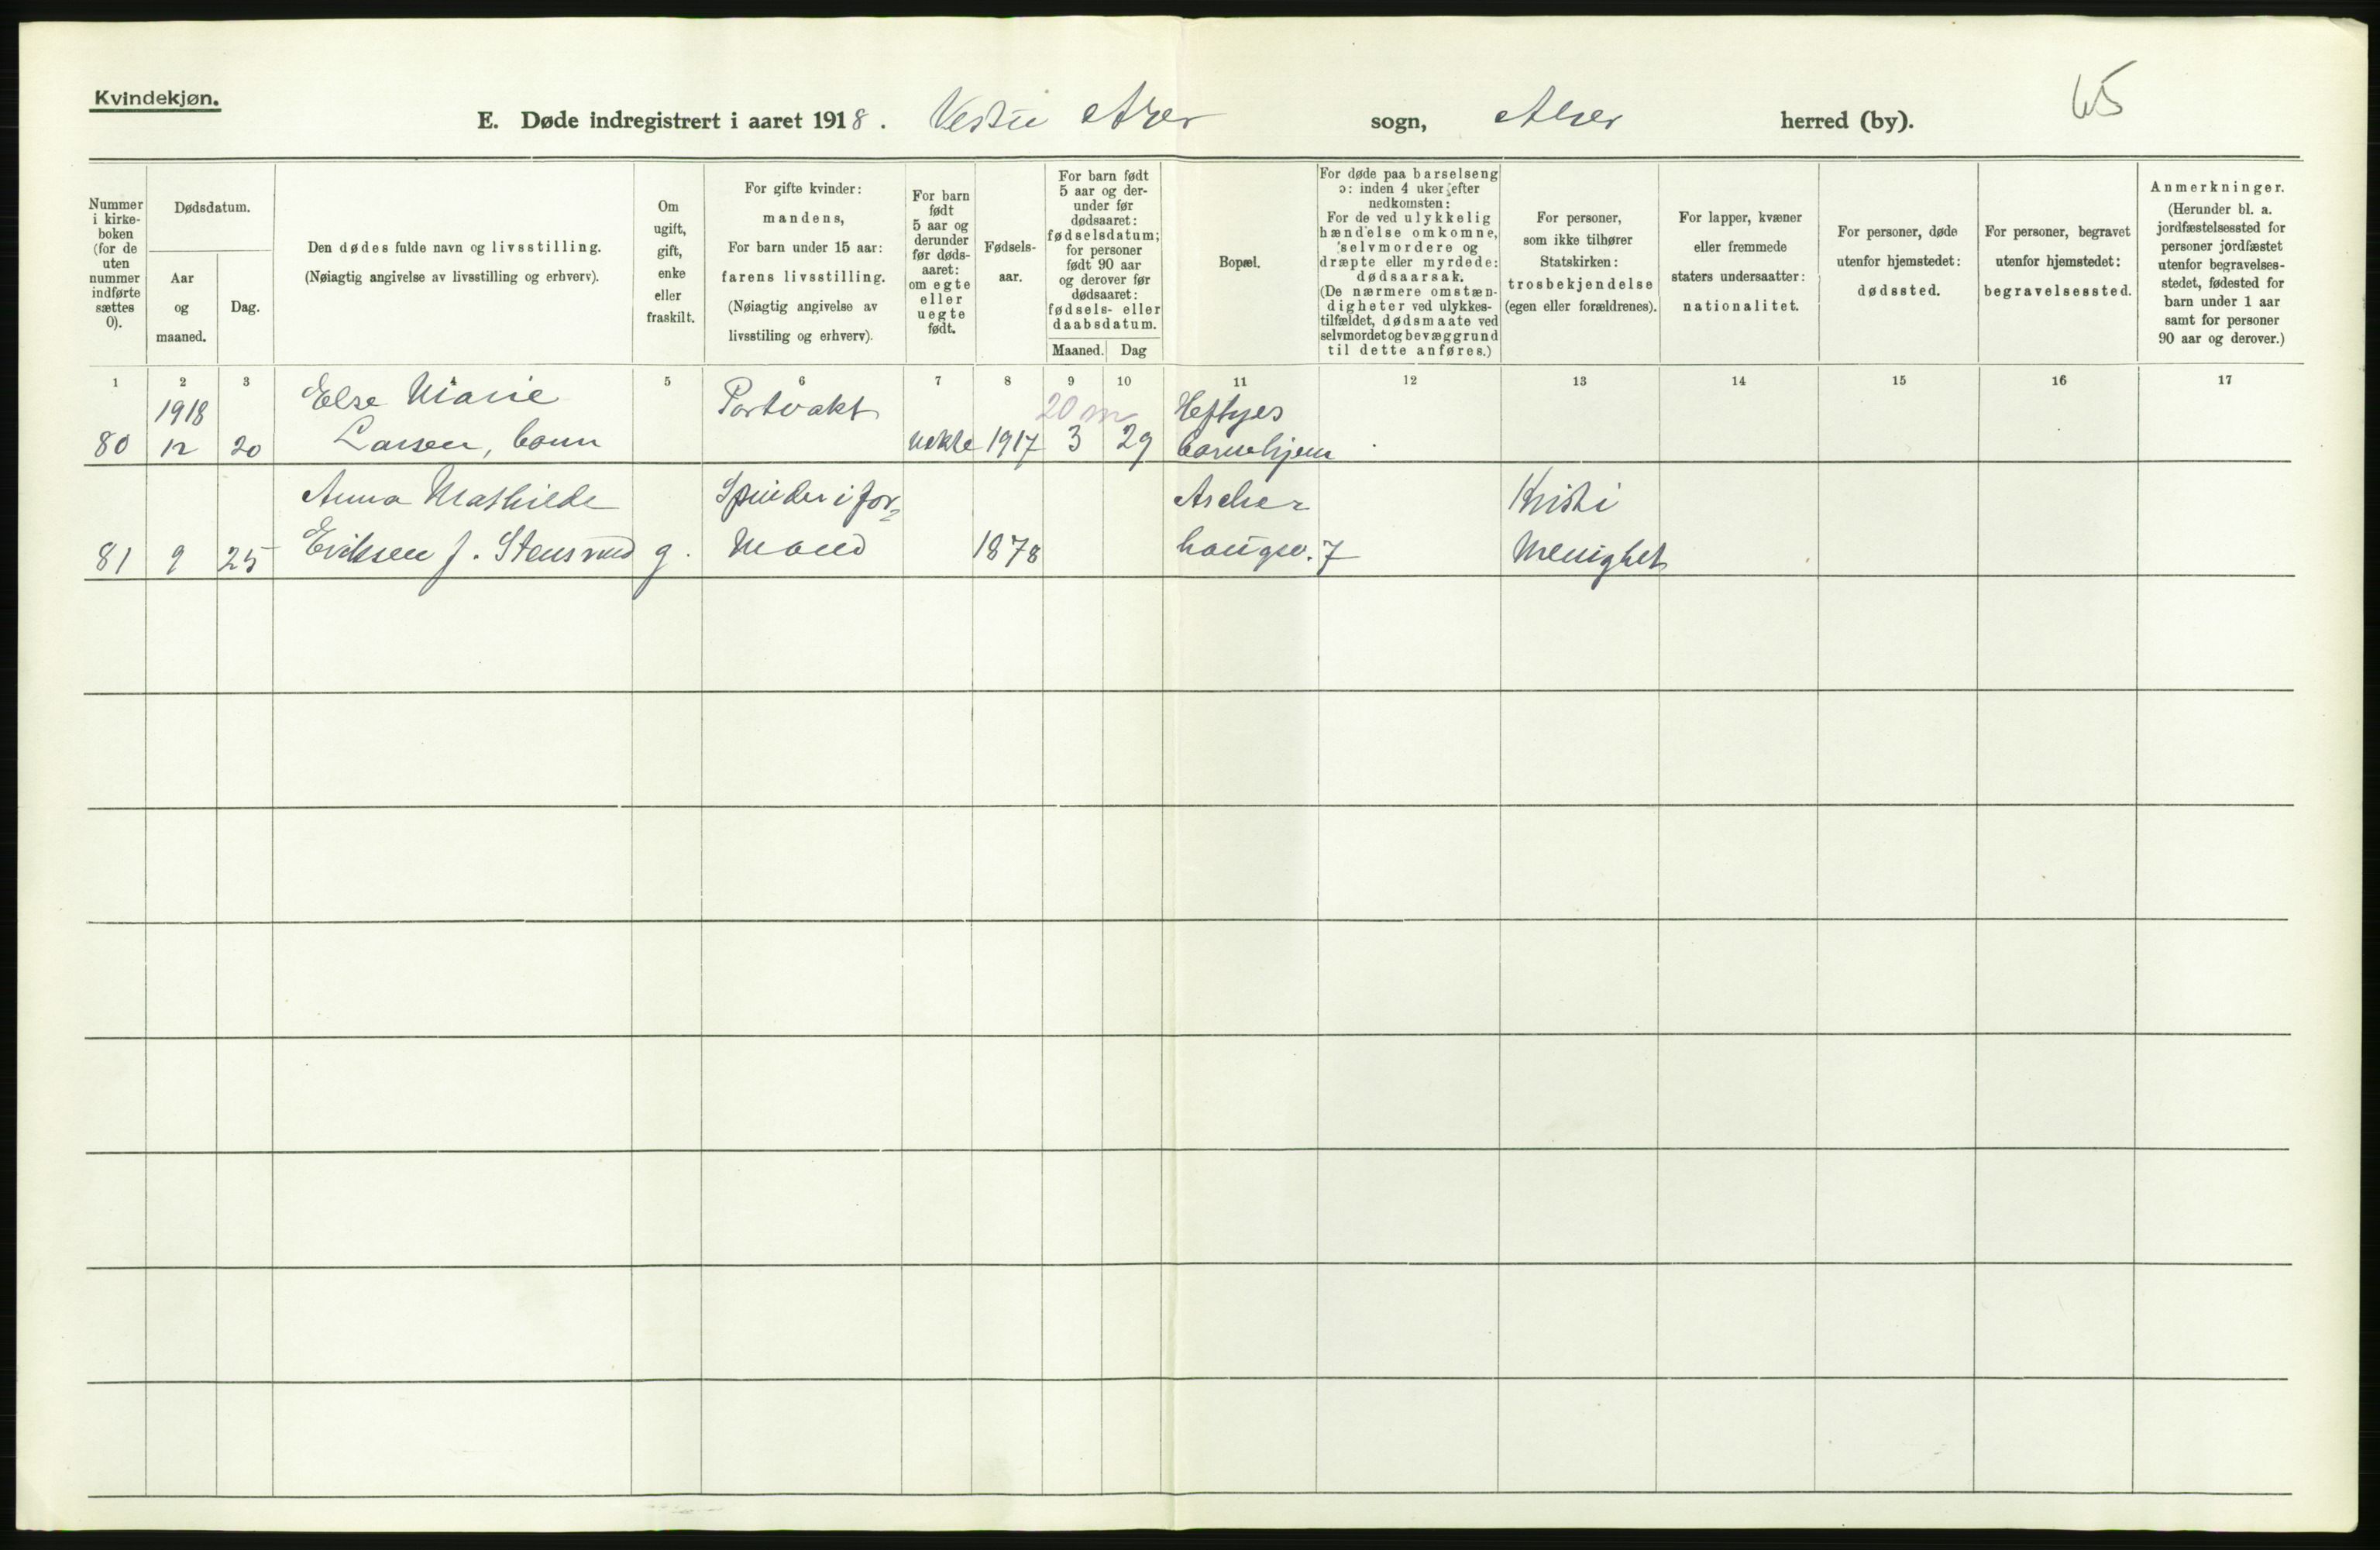 Kvindekjøn.
E. Døde indregistrert i aaret 1918. Vestre Aker sogn, Aker herred (by).
65
Nummer i kirke- boken (for de uten nummer indførte sættes 0).
Dødsdatum.
Aar og maaned.
Dag.
Den dødes fulde navn og livsstilling.
(Nøiagtig angivelse av livsstilling og erhverv).
Om ugift, gift, enke eller fraskilt.
For gifte kvinder:
mandens,
For barn under 15 aar:
farens livsstilling.
(Nøiagtig angivelse av
livsstiling og erhverv).
For barn født 5 aar og derunder før døds- aaret: om egte eller uegte født.
Fødsels- aar.
For barn født 5 aar og der- under før dødsaaret: fødselsdatum; for personer født 90 aar og derover før dødsaaret: fødsels- eller daabsdatum.
Maaned. Dag
Bopæl.
For døde paa barselseng ɔ: inden 4 uker efter nedkomsten: For de ved ulykkelig hændelse omkomne, selvmordere og dræpte eller myrdede: dødsaarsak. (De nærmere omstæn- digheter ved ulykkes- tilfældet, dødsmaate ved selvmordet og bevæggrund til dette anføres.)
For personer, som ikke tilhører Statskirken: trosbekjendelse (egen eller forældrenes).
For lapper, kvæner eller fremmede staters undersaatter: nationalitet.
For personer, døde utenfor hjemstedet: dødssted.
For personer, begravet utenfor hjemstedet: begravelsessted.
Anmerkninger. (Herunder bl. a. jordfæstelsessted for personer jordfæstet utenfor begravelses- stedet, fødested for barn under 1 aar samt for personer 90 aar og derover.)
1 2 3 4 5 6 7 8 9 10 11 12 13 14 15 16 17
1918 Else Marie Portvakt 20 m Heftyes
80 12 20 Larsen, barn uekte 1917 3 29 barnehjem
Anna Mathilde Spinderifor= Kristi
81 9 25 Eriksen f. Stensrud g. Mand 1878 haugsv. 7 Menighet